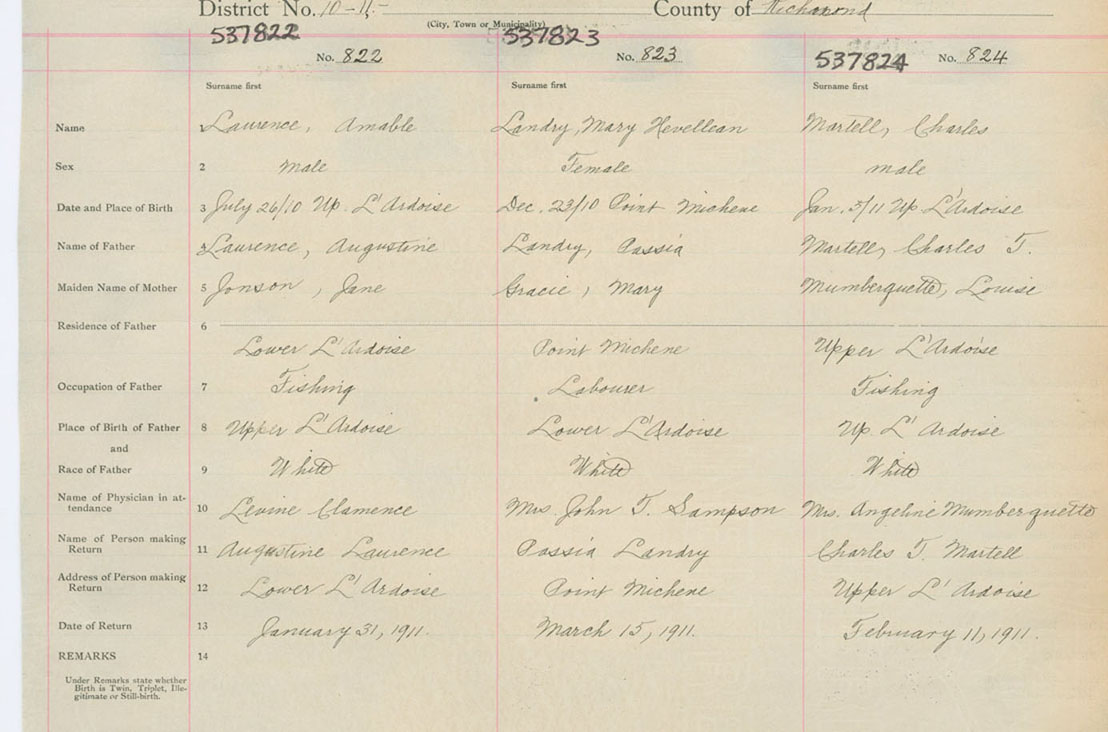 District No. 10-11- County of Richmond
(City, Town or Municipality)
537822 537823 537824
No. 822 No. 823 No. 824
Surname first Surname first Surname first
Name 1 Laurence, Amable Landry, Mary Hevellean Martell, Charles
Sex 2 Male Female male
Date and Place of Birth 3 July 26/10 Up. L'Ardoise Dec. 23/10 Point Michene Jan. 5/11 Up L'Ardoise
Name of Father 4 Laurence, Augustine Landry, Cassia Martell, Charles T.
Maiden Name of Mother 5 Jonson, Jane Gracie, Mary Mumberquette, Louise
Residence of Father 6
Lower L'Ardoise Point Michene Upper L'Ardoise
Occupation of Father 7 Fishing Labourer Fishing
Place of Birth of Father 8 Upper L'Ardoise Lower L'Ardoise Up. L'Ardoise
and
Race of Father 9 White White White
Name of Physician in at-
tendance 10 Levine Clamence Mrs. John T. Sampson Mrs. Angeline Mumberquette
Name of Person making
Return 11 Augustine Laurence Cassia Landry Charles T. Martell
Address of Person making
Return 12 Lower L'Ardoise Point Michene Upper L'Ardoise
Date of Return 13 January 31, 1911. March 15, 1911. February 11, 1911.
REMARKS 14
Under Remarks state whether
Birth is Twin, Triplet, Ille-
gitimate or Still-birth.